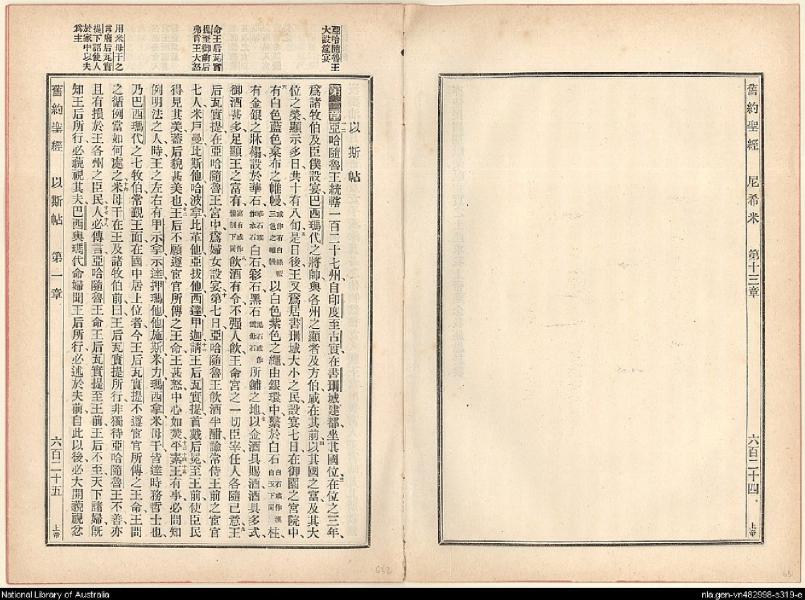 舊約聖經 尼希米 第十三章 六百二十四 上帝
亞哈隨魯王
大設筵宴
命王后瓦實
提至御前后
弗肯王大怒
用米母干之
言廢后瓦實
提下詔使人
於家中以夫
爲主
以斯帖
第一章 亞哈隨魯王統轄一百二十七州自印度至古實在書珊城建都坐其國位在位之三年
爲諸牧伯及臣僕設宴巴西瑪代之將帥與各州之顯者及方伯咸在其前以其國之富及其大
位之榮顯示多日共十有八旬是日後王又爲居書珊城大小之民設宴七日在御園之宮院中
有白色藍色棻布之帷幔 以白色紫色之繩由銀環中繫於白石 柱
有金銀之牀榻設於華石 白石彩石黑石 所鋪之地以金酒具賜酒酒具多式
御酒甚多足顯王之富有 飲酒有令不强人飲王命宮之一切臣宰任人各隨己意王
后瓦實提在亞哈隨魯王宮中爲婦女設宴第七日亞哈隨魯王飲酒半酣諭常侍王前之宦官
七人米戶曼比斯他哈波拿比革他亞拔他西達甲迦請王后瓦實提首戴后冕至王前使臣民
得見其美蓋后貌甚美也王后不願遵宦官所傳之王命王甚怒中心如焚平素王有事必問知
例明法之人時王之左右有甲示拿示達押瑪他他施斯米力瑪西拿米母干皆達時務哲士也
乃巴西瑪代之七牧伯常覲王面在國中居上位者今王后瓦實提不遵宦官所傳之王命王問
之循例當如何處之米母干在王及諸牧伯前曰王后瓦實提所行非獨待亞哈隨魯王不善亦
且有損於王各州之臣民人必傳言亞哈隨魯王命王后瓦實提至王前王后不至天下諸婦旣
知王后所行必藐視其夫巴西與瑪代命婦聞王后所行必述於夫前自此以後必大開藐視忿
舊約聖經 以斯帖 第一章 六百二十五 上帝
National Library of Australia
nla.gen-vn482998-s319-e